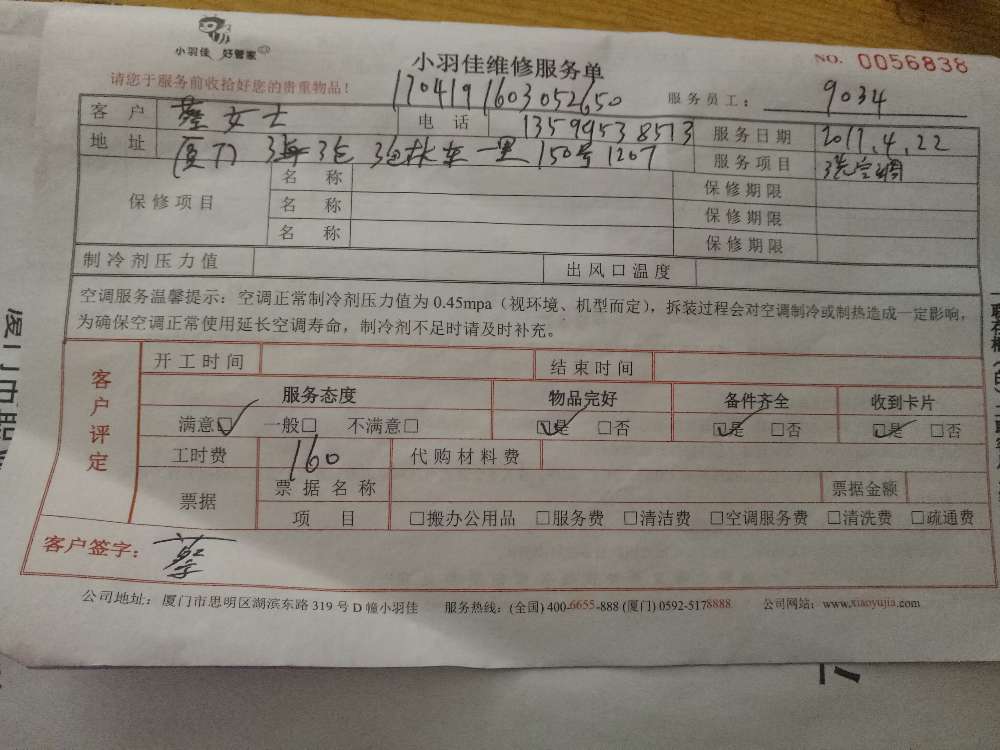 小羽佳 好管家
小羽佳维修服务单
NO. 0056838
请您于服务前收拾好您的贵重物品！
170419160305265 0
服务员工： 9034
客户 蔡女士 电话 13599538513 服务日期 2017.4.22
地址 (厦门) 150号1207 服务项目 洗空调
保修项目 名称 保修期限
名称 保修期限
名称 保修期限
制冷剂压力值 出风口温度
空调服务温馨提示：空调正常制冷剂压力值为0.45mpa（视环境、机型而定），拆装过程会对空调制冷或制热造成一定影响，
为确保空调正常使用延长空调寿命，制冷剂不足时请及时补充。
客户评定
开工时间 结束时间
服务态度 物品完好 备件齐全 收到卡片
满意☑ 一般□ 不满意□ ☑是 □否 ☑是 □否 ☑是 □否
工时费 160 代购材料费
票据 票据名称 票据金额
项目 □搬办公用品 □服务费 □清洁费 □空调服务费 □清洗费 □疏通费
客户签字： 蔡
公司地址：厦门市思明区湖滨东路319号D幢小羽佳 服务热线：(全国) 400-6655-888 (厦门) 0592-5178888 公司网站：www.xiaoyujia.com